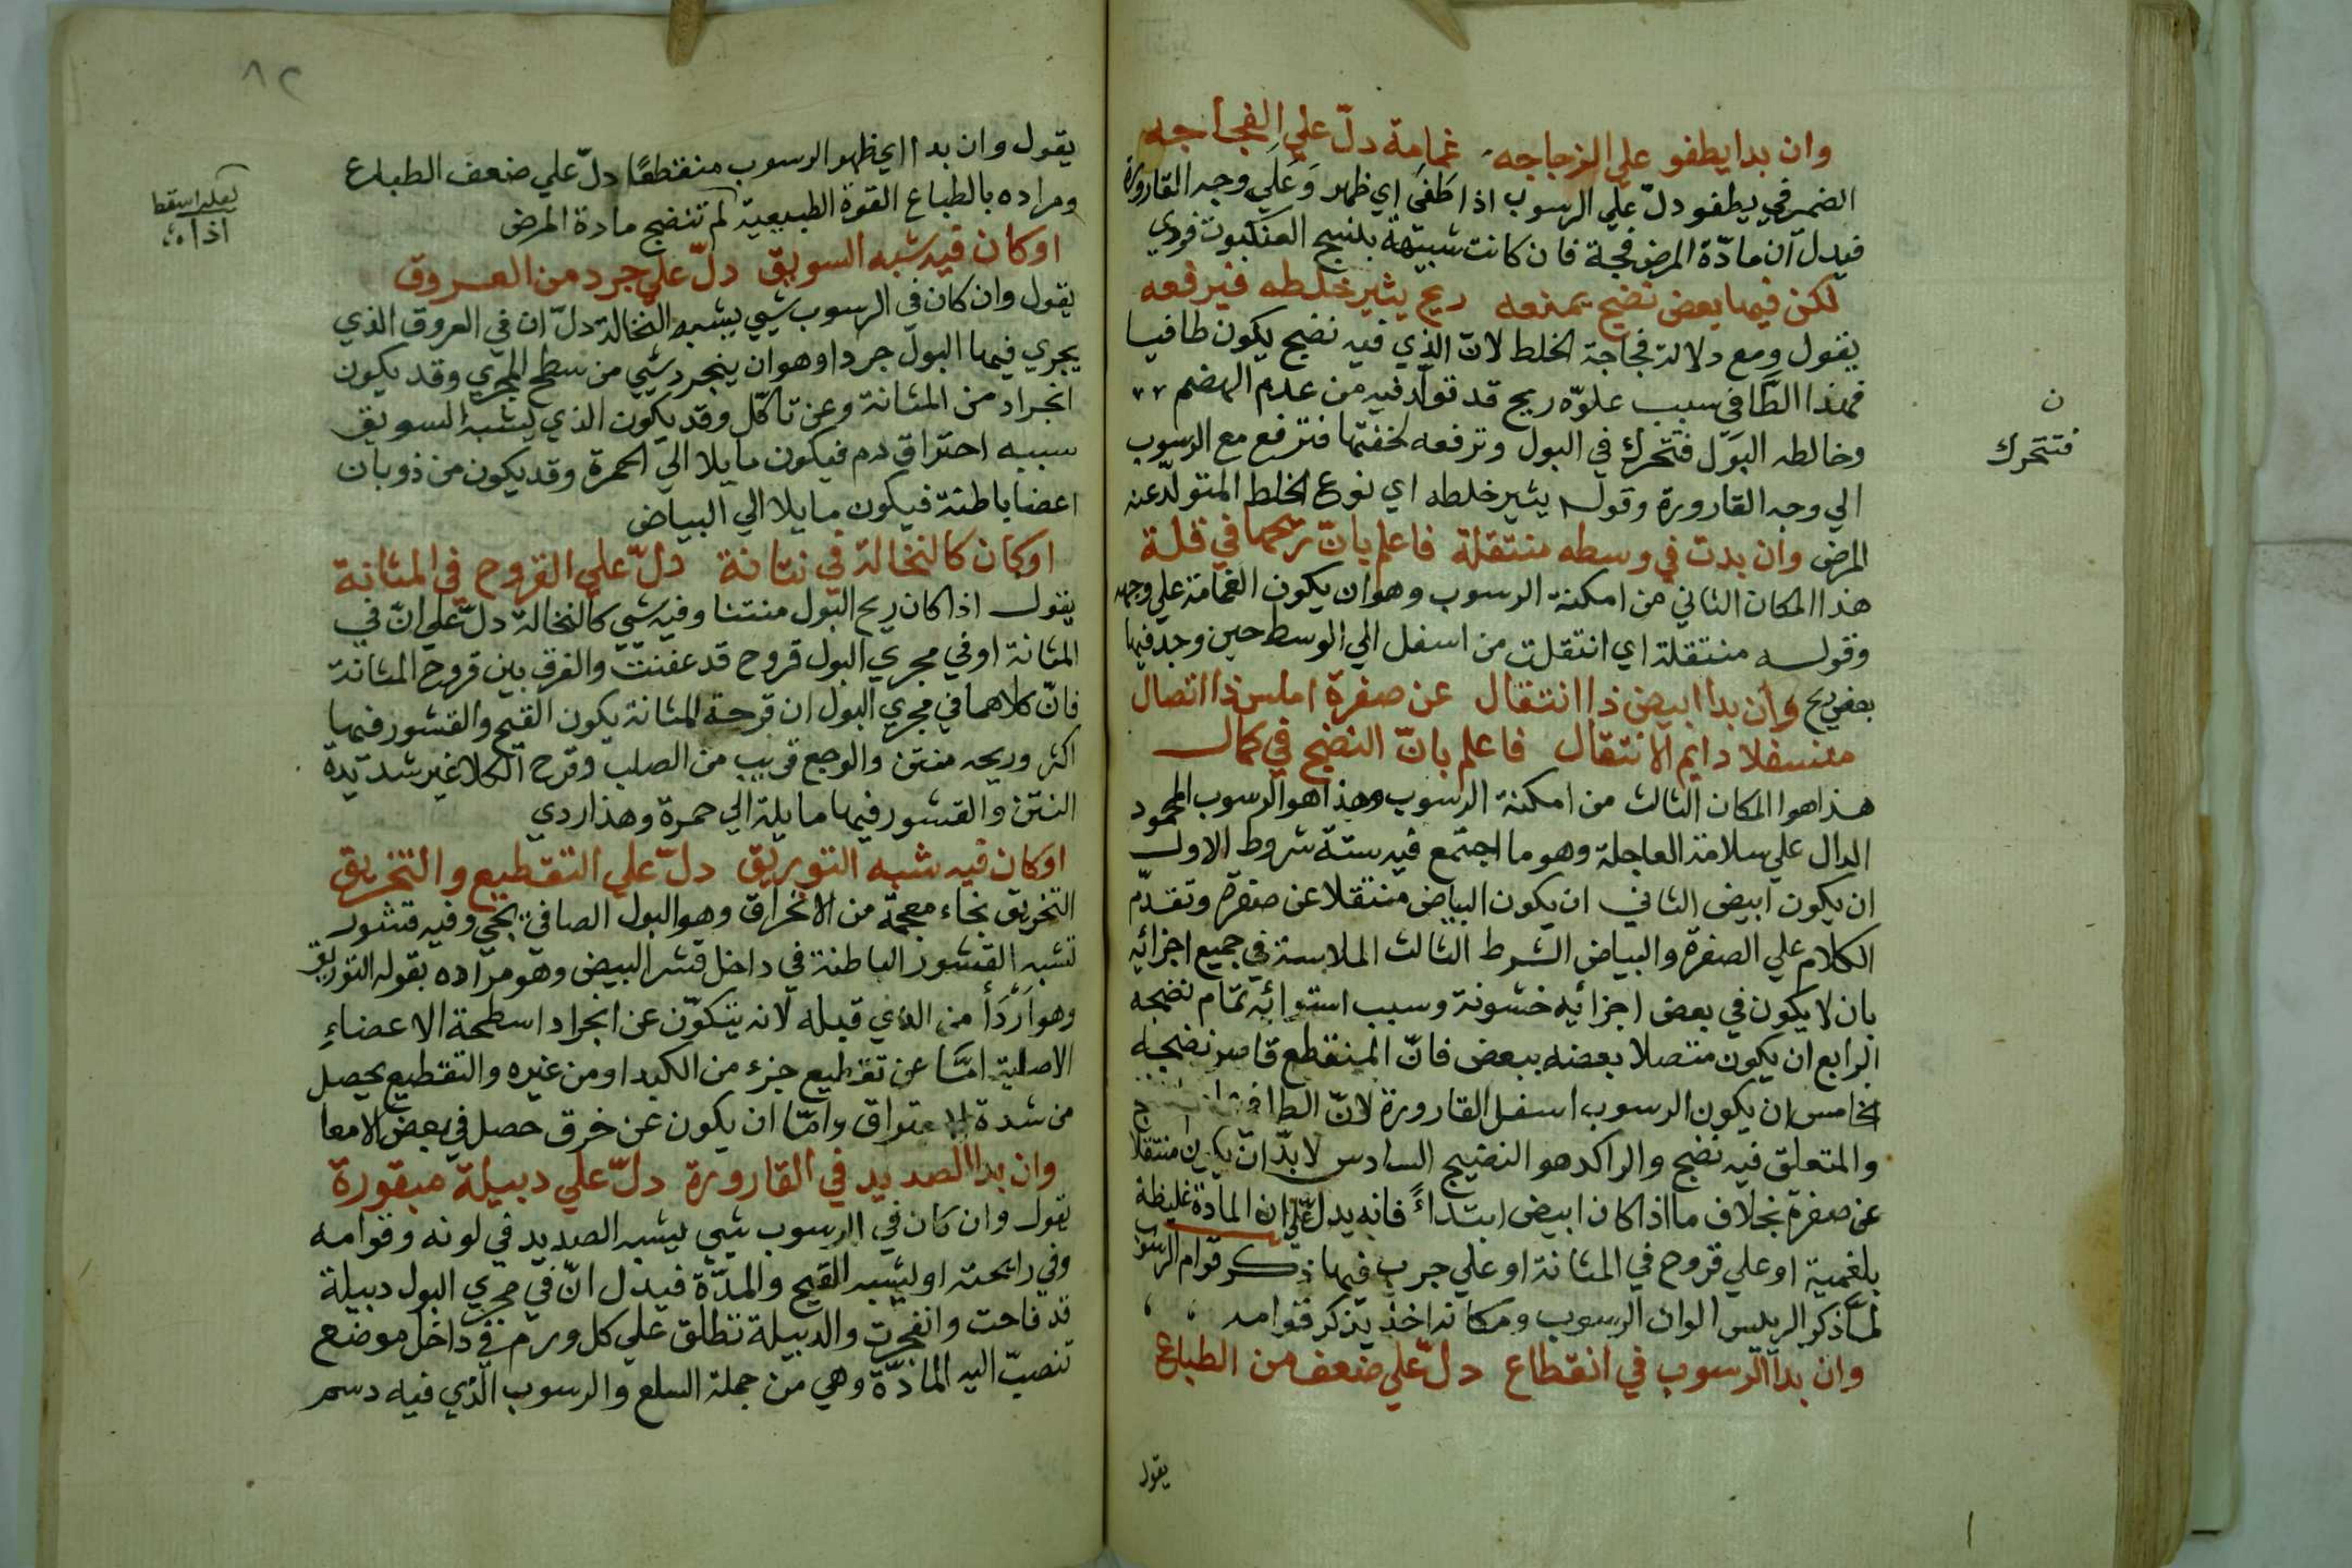 وان بدا يطفو علي الزجاجه غمامة دلّ علي الفجاجه
الضمير في يطفو دلّ علي الرسوب اذا طَفَي اي ظهر وَعَلَي وجه القارورة
فيدل ان مادّة المرض فجة فان كانت شبيهة بلنسج العنكبوت فردي
لكن فيها بعض نضج يمنعه ريح يثير خلطه فيرفعه
يقول ومع دلالة فجاجة الخلط لانّ الذي فيه نضج يكون طافيا
فهذا الطّافي سبب علوّه ريح قد تولّد فيه من عدم الهضم
وخالطه البَوّل فتحرك في البول وترفعه لخفتها فترفع مع الرسوب
الي وجه القارورة وقوله يثير خلطه اي نوع الخلط المتولّد عنه
المرض وان بدت في وسطه منتقلة فاعلم بانّ ريحها في قلة
هذا المكان الثاني من امكنة الرسوب وهو ان يكون الغمامة علي وجهه
وقوله منتقلة اي انتقلت من اسفل الي الوسط حين وجد فيها
بعض ريح وان بدا ابيض ذا انتقال عن صفرة املس ذا اتصال
منسفلا دايم الانتقال فاعلم بانّ النضج في كمال
هذا هوا المكان الثالث من امكنة الرسوب وهذا هو الرسوب المحمود
الدال علي سلامة العاجلة وهو ما اجتمع فيه ستة شروط الاول
ان يكون ابيض الثاني ان يكون البياض منتقلا عن صفرة وتقدّم
الكلام علي الصفرة والبياض الشرط الثالث الملاسة في جميع اجزائه
بان لا يكون في بعض اجزائيه خشونة وسبب استوائه تمام نضجه
الرابع ان يكون متصلا بعضه ببعض فانّ المنقطع قاصر نضجه
الخامس ان يكون الرسوب اسفل القارورة لانّ الطافي
والمتعلق فيه نضج والراكد هو النضيج السادس لا بدّ ان يكون منتقلا
عن صفرة بخلاف ما اذا كان ابيض ابتداءً فانه يدل علي ان المادة غليظة
بلغمية او علي قروح في المثانة او علي جرب فيها ذكر قوام الرسوب
لمّا ذكر الريس الوان الرسوب ومكانه اخذ يذكر قوامه
وان بدا الرسوب في انقطاع دلّ علي ضعف من الطباع
يقول
ن
فتتحرك
٨٢
يقول وان بدا اي ظهر الرسوب منقطعًا دلّ علي ضعف الطباع
ومراده بالطباع القوة الطبيعية لم تنضج مادة المرض
لعله اسقط
اذا
او كان فيه شبه السويق دلّ علي جرد من العروق
يقول وان كان في الرسوب شيي يشبه النخالة دلّ ان في العروق الذي
يجري فيها البول جردا وهو ان ينجرد شيي من سطح المجري وقد يكون
انجراد من المثانة وعن تاكّل وقد يكون الذي يشبه السويق
سببه احتراق دم فيكون مايلا الي الحمرة وقد يكون من ذوبان
اعضا باطنة فيكون مايلا الي البياض
او كان كالنخالة في نتانة دلّ علي القروح في المثانة
يقول اذا كان ريح البول منتنا وفيه شيي كالنخالة دلّ علي انّ في
المثانة او في مجري البول قروح قد عفنت والفرق بين قروح المثانة
فانّ كلاهما في مجري البول ان قرحة المثانة يكون القيح والقشور فيها
اكثر وريحه منتن والوجع قريب من الصلب وقرح الكلا غير شديدة
النتن والقشور فيها مايلة الي حمرة وهذا ردي
او كان فيه شبه التوريق دلّ علي التقطيع والتخريق
التخريق بخاء معجمة من الانخراق وهو البول الصافي يجي وفيه قشور
تشبه القشور الباطنة في داخل قشر البيض وهو مراده بقوله التوريق
وهو أَرْدَأ من الذي قبله لانه يتكوّن عن انجراد اسطحة الاعضاءِ
الاصلية امَّا عن تقطيع جزء من الكبد او من غيره والتقطيع يحصل
من شدة الاحتراق وامّا ان يكون عن خرق حصل في بعض الامعا
وان بدا الصديد في القارورة دلّ علي دبيلة مبقورة
يقول وان كان في الرسوب شيي يشبه الصديد في لونه وقوامه
وفي رائحته او يشبه القيح والمدّة فيدل انّ في مجري البول دبيلة
قد فاحت وانفجرت والدبيلة تطلق علي كل ورم في داخل موضع
تنصبّ اليه المادّة وهي من جملة السلع والرسوب الذي فيه دسم